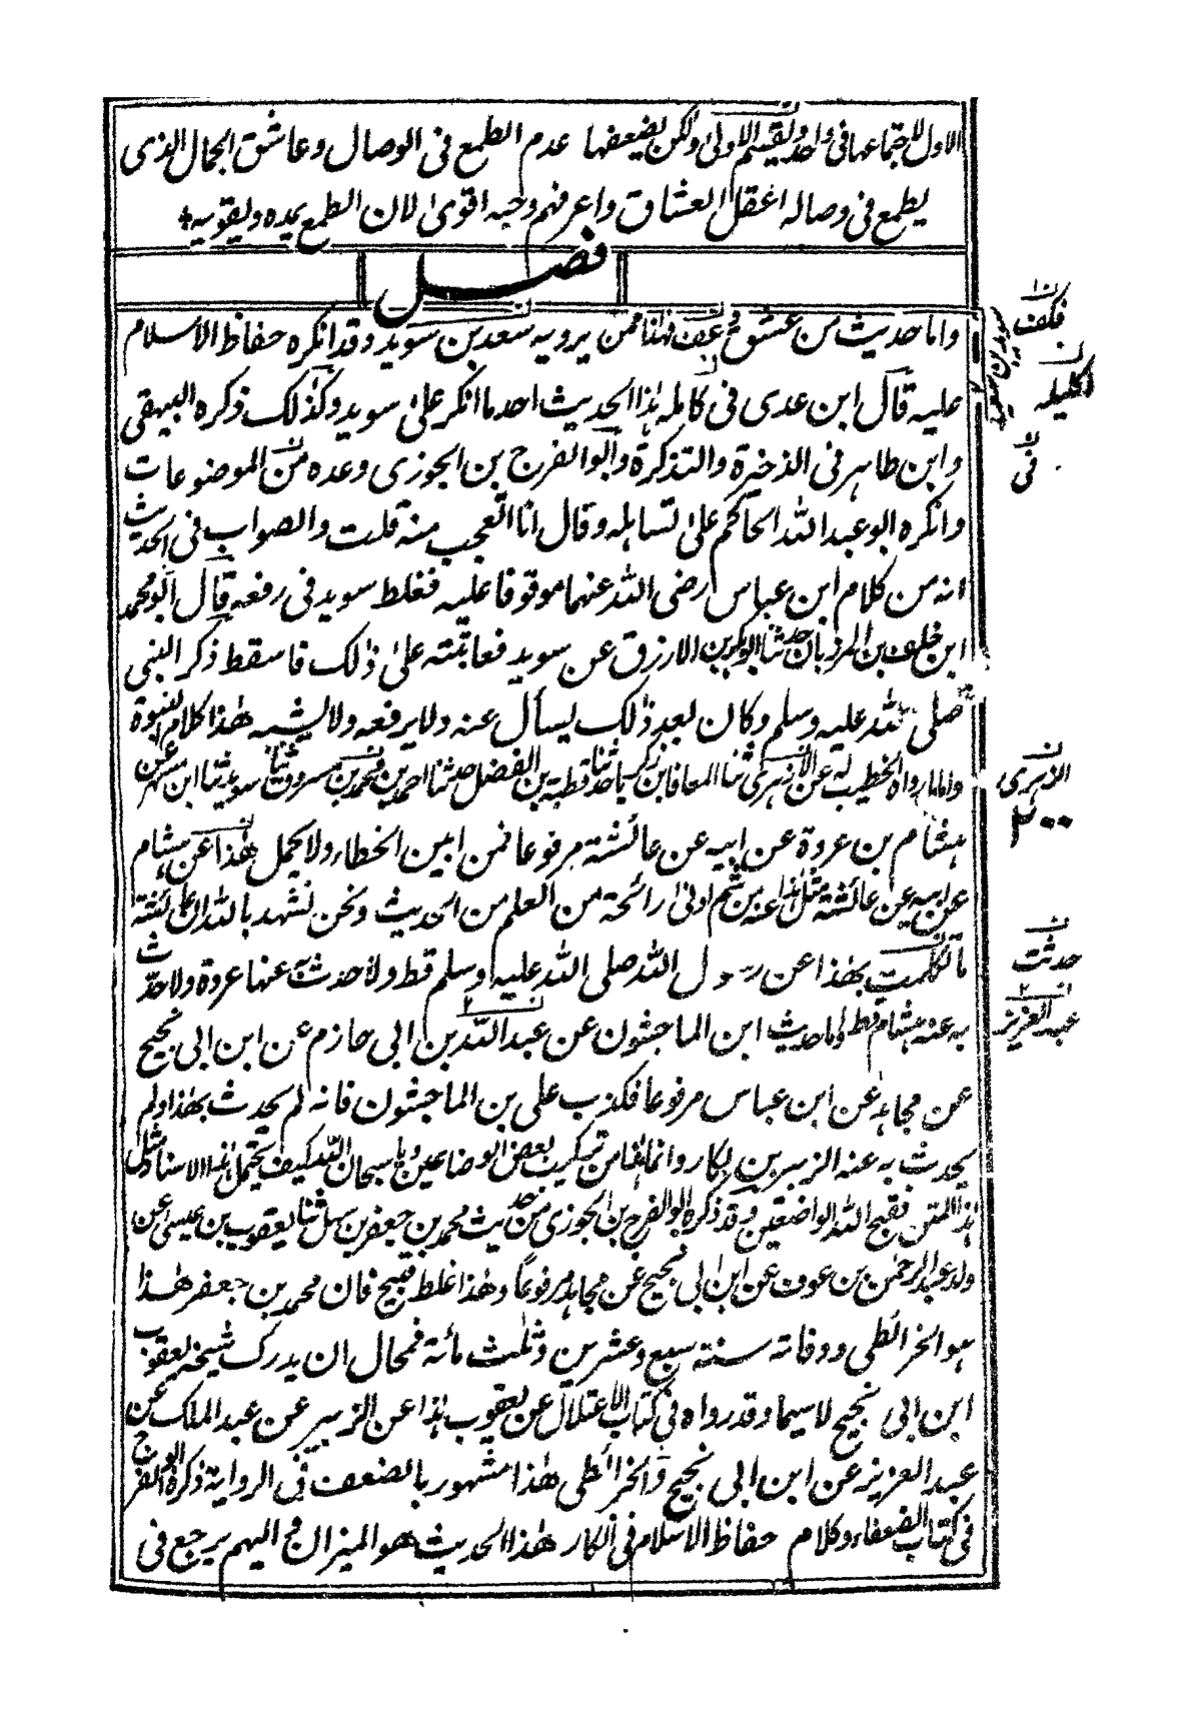 الاول لاجتماعها فى واحد ولقيتهم الاولى ولكن يضعفها عدم الطمع فى الوصال وعاشق الجمال الذى
يطمع فى وصاله اعقل العشاق واعرفهم وحبه اقوى لان الطمع يمده ويقويه
فصل
واما حديث من عشق وعف فهذا ممن يرويه سعد بن سويد وقد انكره حفاظ الاسلام
عليه قال ابن عدى فى كامله هذا الحديث احد ما انكر على سويد وكذلك ذكره البيهقى
وابن طاهر فى الذخيرة والتذكرة وابو الفرج بن الجوزى وعده من الموضوعات
وانكره ابو عبد الله الحاكم على تساهله وقال انا اتعجب منه قلت والصواب فى الحديث
انه من كلام ابن عباس رضى الله عنهما موقوفا عليه فغلط سويد فى رفعه قال ابو محمد
ابن خلف بن المرزبان حدثنا ابو بكر بن الازرق عن سويد فعاتبته على ذلك فاسقط ذكر النبى
صلى الله عليه وسلم وكان بعد ذلك يسأل عنه ولا يرفعه ولا يشبه هذا كلام النبوة
واما ما رواه الخطيب له عن الازهرى ثنا المعافا بن زكريا حدثنا قطبة بن الفضل حدثنا احمد بن محمد بن مسروق ثنا سويد ثنا ابن مسهر عن
هشام بن عروة عن ابيه عن عائشة مرفوعا فمن ابين الخطاء ولا يحمل هذا عن هشام
عن ابيه عن عائشة مثل هذا عند من شم ادنى رائحة من العلم من الحديث ونحن نشهد بالله ان عائشة
ما تكلمت بهذا عن رسول الله صلى الله عليه وسلم قط ولا حدث عنها عروة ولا حدث
به عنه هشام قط واما حديث ابن الماجشون عن عبد الله بن ابى حازم عن ابن ابى نجيح
عن مجاهد عن ابن عباس مرفوعا فكذب على بن الماجشون فانه لم يحدث بهذا ولم
يحدث به عنه الزبير بن بكار وانما هذا من تركيب بعض الوضاعين ويا سبحان الله كيف يحتمل هذا الاسناد مثل
هذا المتن فقبح الله الواضعين وقد ذكره ابو الفرج بن الجوزى من حديث محمد بن جعفر بن سهل ثنا يعقوب بن عيسى عن
ولد عبد الرحمن بن عوف عن ابن ابى نجيح عن مجاهد مرفوعا وهذا غلط قبيح فان محمد بن جعفر هذا
هو الخرائطى ووفاته سنة سبع وعشرين وثلث مائة فمحال ان يدرك شيخه يعقوب
ابن ابى نجيح لاسيما وقد رواه فى كتاب الاعتلال عن يعقوب هذا عن الزبير عن عبد الملك عن
عبد العزيز عن ابن ابى نجيح والخرائطى هذا مشهور بالضعف فى الرواية ذكره ابو الفرج
فى كتاب الضعفاء وكلام حفاظ الاسلام فى انكار هذا الحديث هو الميزان واليهم يرجع فى
فكف
اكليله
فى
الازهرى
٢٠٠
حدثت
عبد العزيز